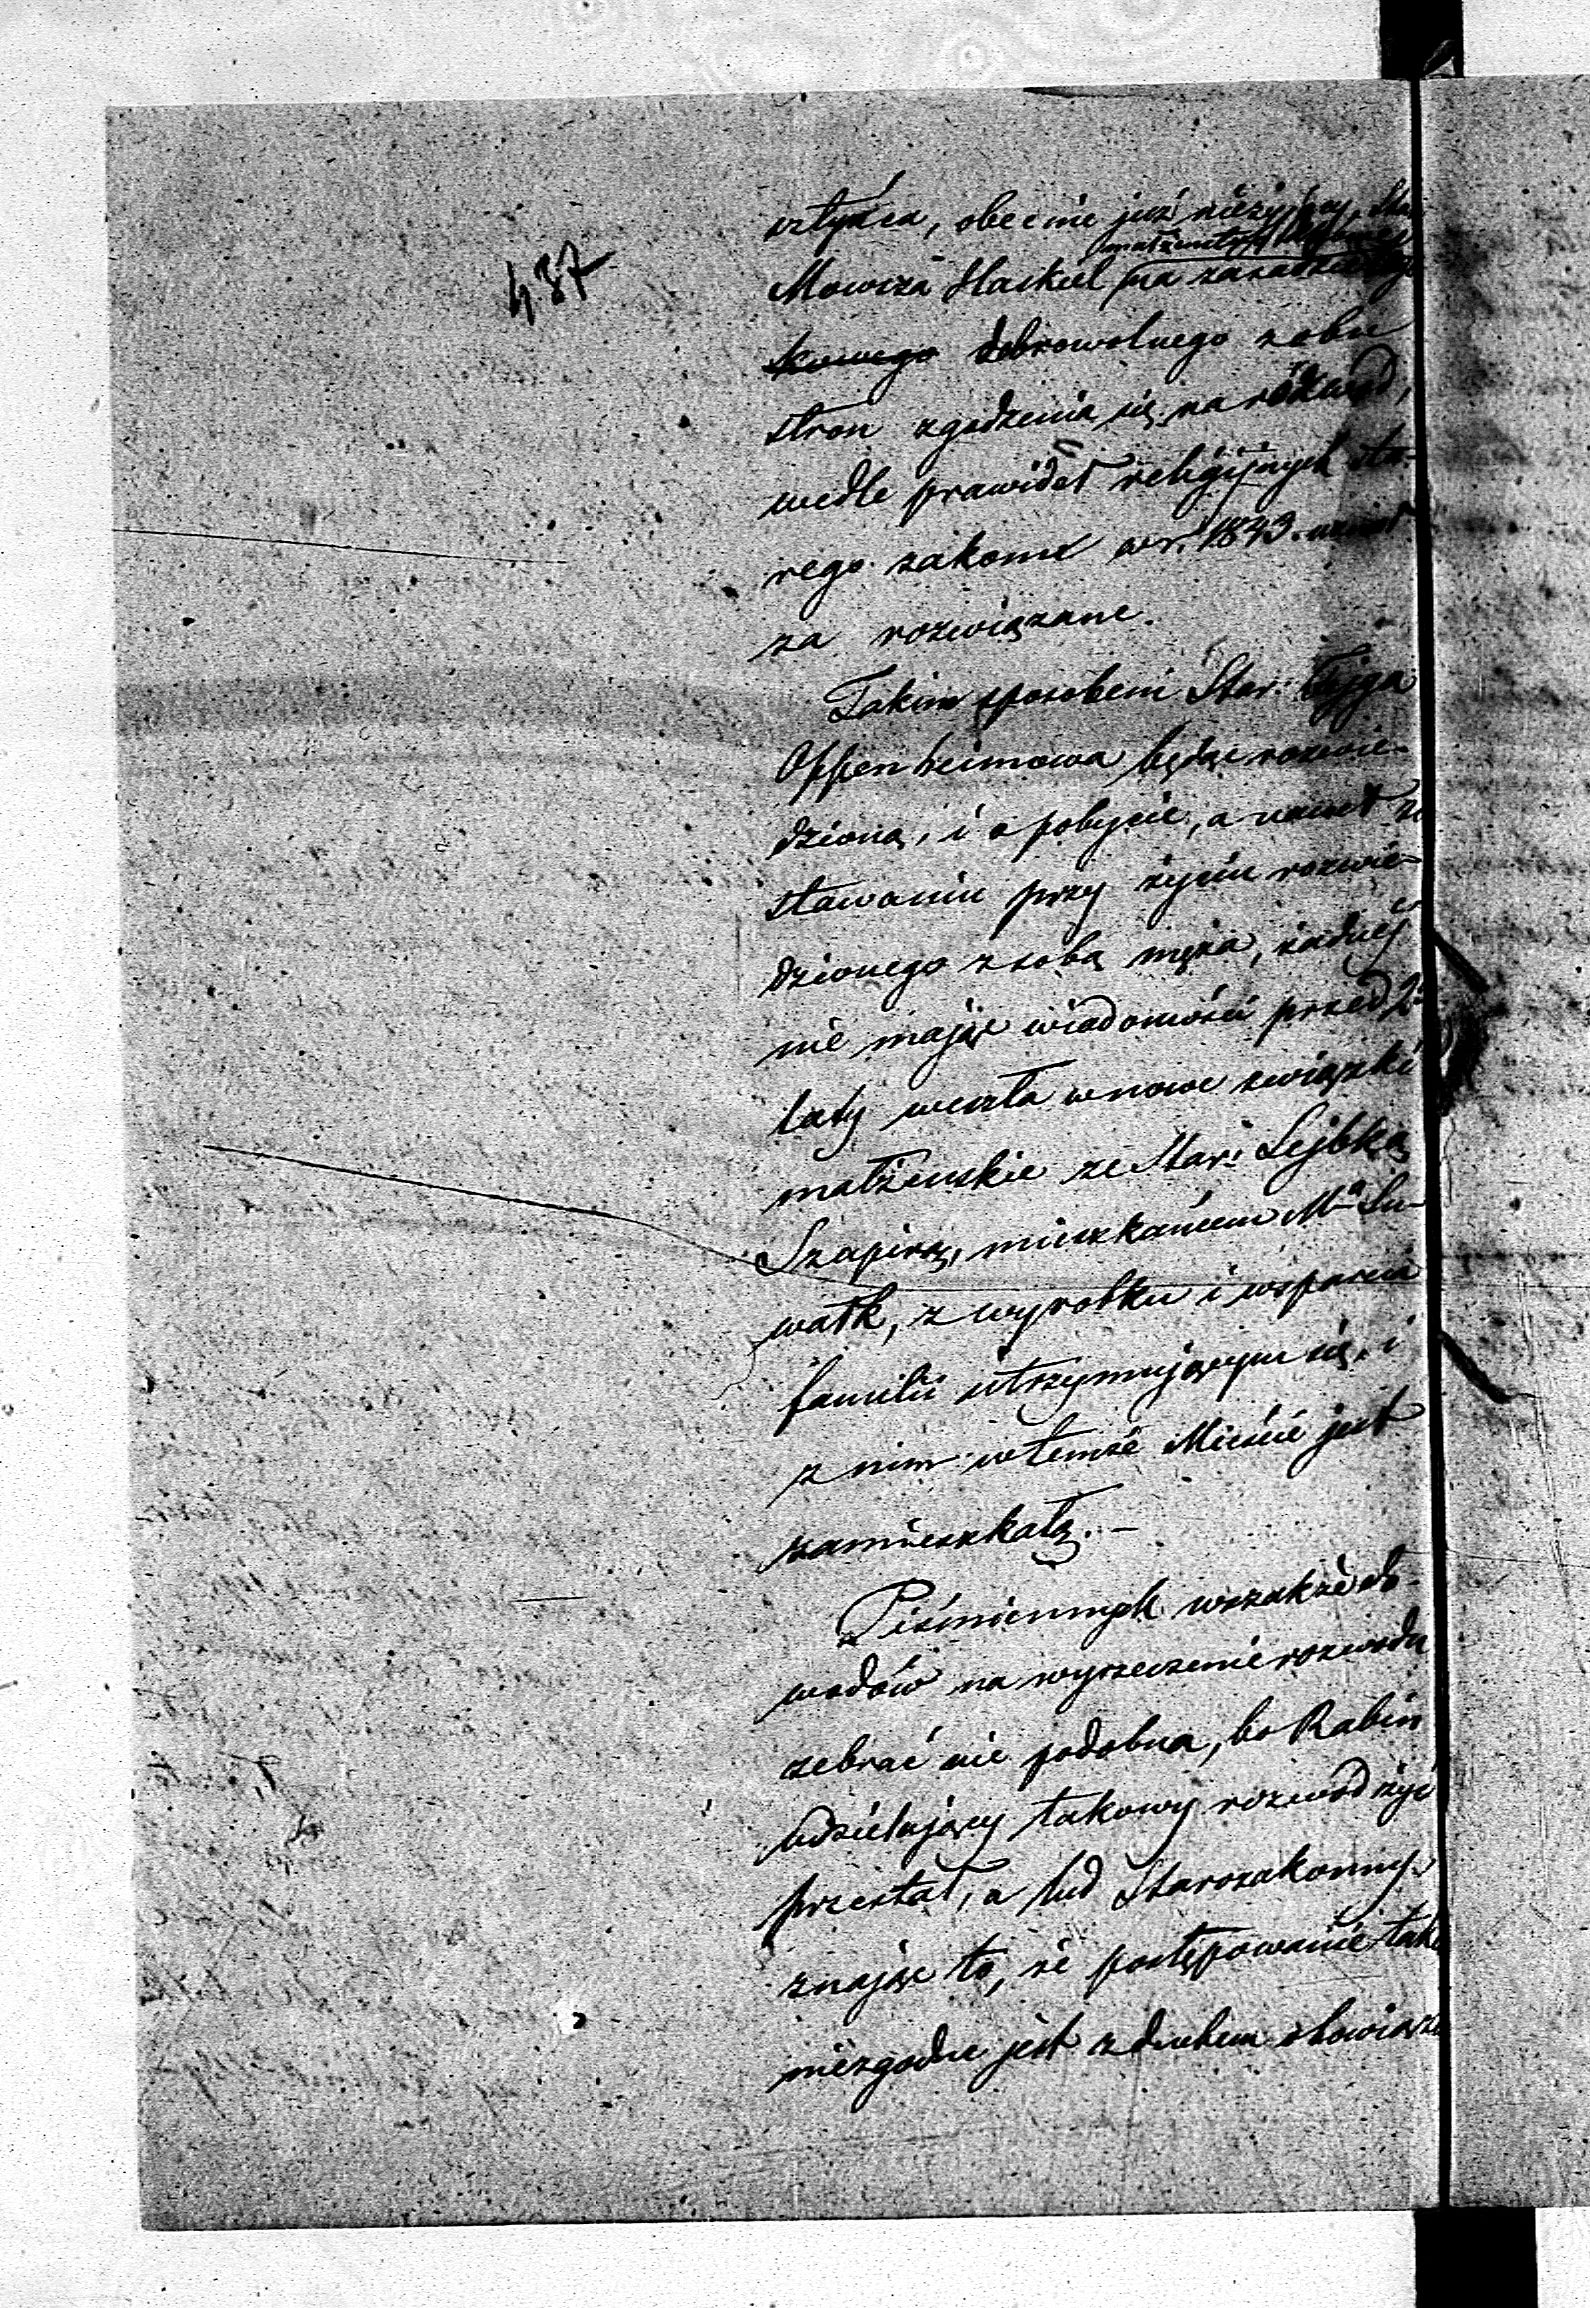 437
obecnie już nieżyjący,
małżeństwo
Mowsza Haskiel na zasadzie
dobrowolnego z obu
stron zgodzenia się na rozwód,
wedle prawideł religijnych sta-
rego zakonu w r. 1843. uznał
za rozwiązane.
Takim sposobem Star: Fejga
Oppenheimowa będąc rozwie-
dzioną, i o pobycie, a nawet zo
stawaniu przy życiu rozwie-
dzionego z sobą męża, żadnej
nie mając wiadomości przed 2ma
laty weszła w nowe związki
małżeńskie ze Star: Lejbką
Szapirą, mieszkańcem Mta Su-
wałk, z wyrobku i wsparcia
familii utrzymującym się, i
z nim w temże Mieście jest
zamieszkałą. –
Piśmiennych wszakże do-
wodów na wyrzeczenie rozwodu
zebrać nie podobna, bo Rabin
udzielający takowy rozwód żyć
przestał, a lud Starozakonny.
znając to, że postępowanie taki
niezgodne jest z duchem obowiązu